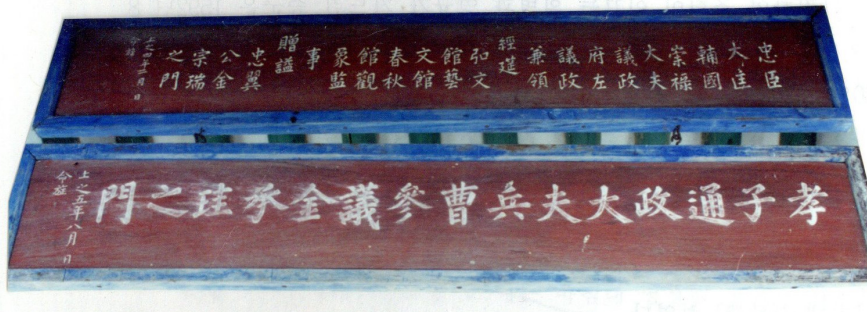 忠臣
大匡
輔國
崇祿
大夫
議政
府左
議政
兼領
經筵
弘文
館藝
文館
春秋
館觀
象監
事
贈諡
忠翼
公金
宗瑞
之門
上之 年 月 日
命旌
孝子通政大夫兵曹參議金承珪之門
上之五年八月 日
命旌